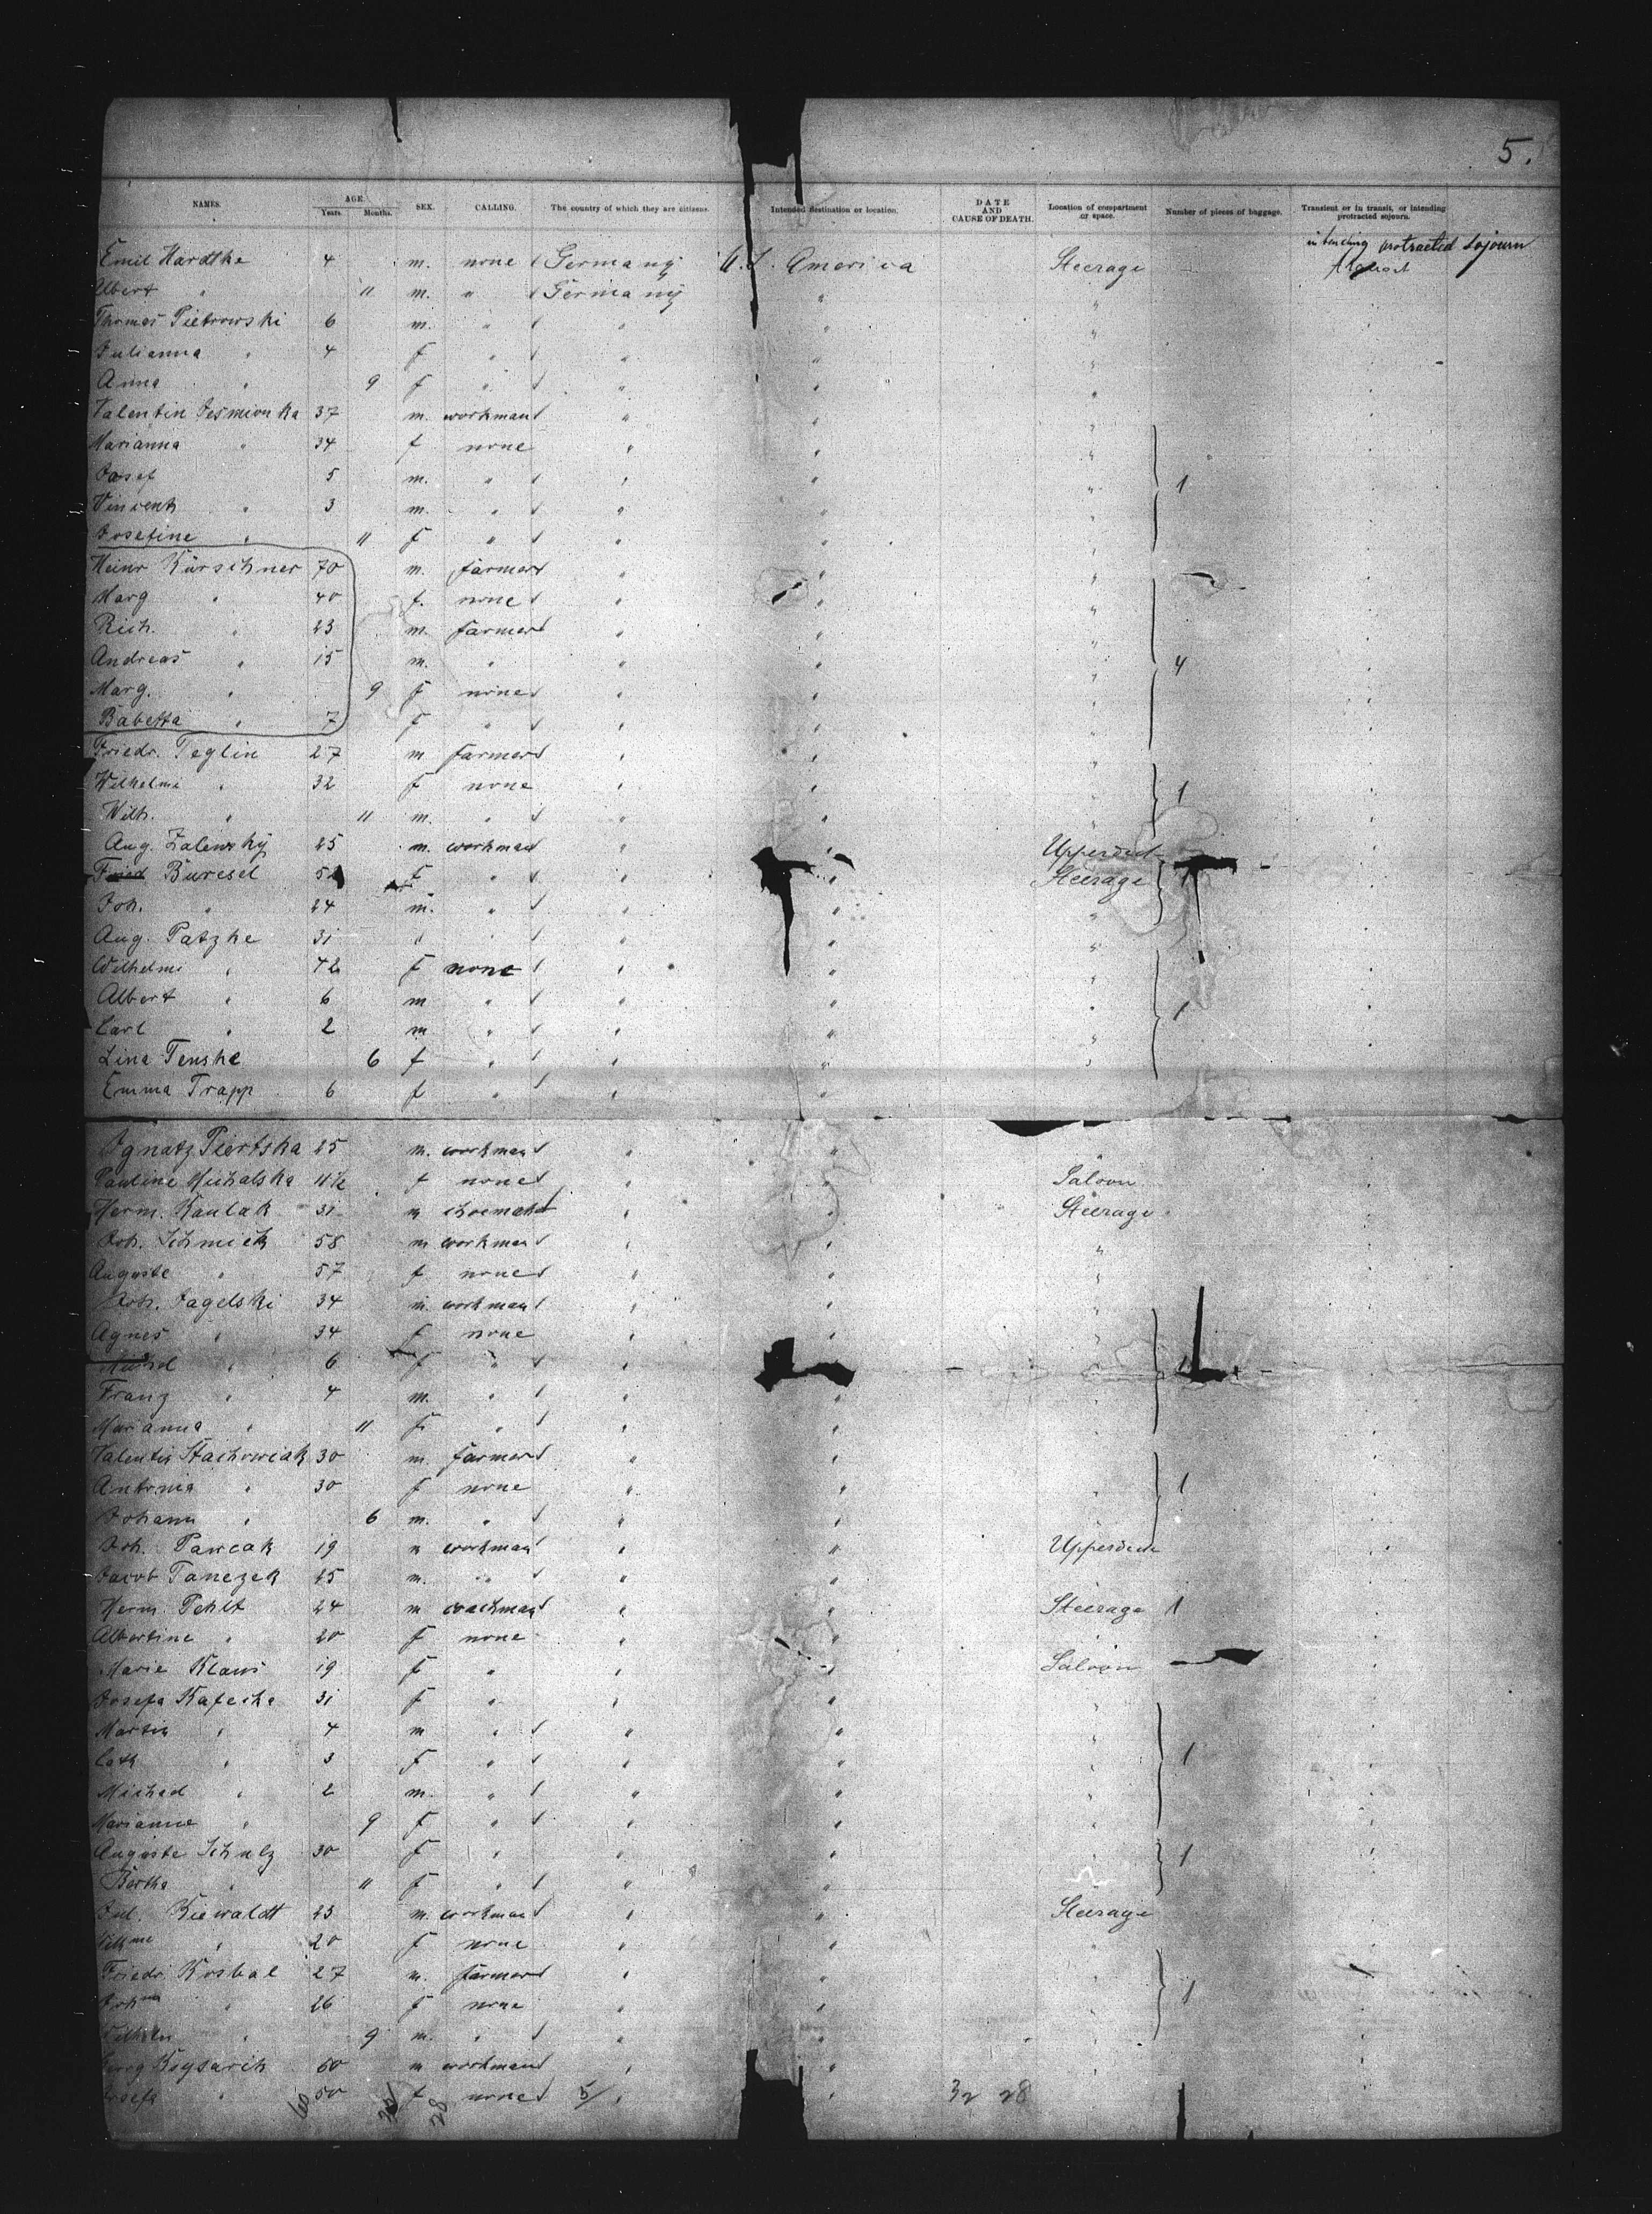 5.
NAMES. AGE. Years. Months. SEX. CALLING. The country of which they are citizens. Intended destination or location. DATE AND CAUSE OF DEATH. Location of compartment or space. Number of pieces of baggage. Transient or in transit, or intending protracted sojourn.
Emil Hardtke 4 m. none Germany U.S. America Steerage intending protracted sojourn
Albert " 11 m. " Germany " "
Thomas Pietrowski 6 m. " " " "
Julianna " 4 f " " " "
Anna " 9 f " " " "
Valentin Jesmionka 37 m. workman " " "
Marianna " 34 f none " " "
Josef 5 m. " " " " 1
Vincent " 3 m. " " " "
Josefine " 11 f " " " "
Heinr Kürschner 70 m. farmer " " "
Marg " 40 f. none " " "
Rich. " 23 m. farmer " " "
Andreas " 15 m. " " " " 4
Marg. " 9 f none " " "
Babetta " 7 f " " " "
Friedr. Teglin 27 m farmer " " "
Wilhelmi " 32 f none " " " 1
Wilh. " 11 m. " " " "
Aug. Zalewsky 25 m. workman " " Upperdeck
Buresel f " " " Steerage
Joh. " 24 m. " " " "
Aug. Patzke 31 " " " "
Wilhelmi " 42 f none " " "
Albert " 6 m " " " "
Carl " 2 m " " " " 1
Lina Tenske 6 f " " " "
Emma Trapp 6 f " " "
Ignatz Piertska 25 m. workman " " "
Pauline Michalska 11½ f none " Saloon
Herm. Kaulak 31 m shoemaker " " Steerage
Joh. Schmidt 58 m workman " " "
Auguste " 57 f none " " "
Joh. Jagelski 34 m. workman " " "
Agnes " 34 f none " " "
" 6 f " "
Franz " 4 m. " " "
Marianna " 11 f " " " "
Valentin Stachowiak 30 m. farmer " " "
Antonia " 30 f none " " " 1
Johann " 6 m. " " " "
Joh. Pawcak 19 m workman " " Upperdeck
Jacob Tanczek 25 m. " " " "
Herm. Pehlt 24 m coachman " " Steerage 1
Albertine " 20 f none " " "
Marie Klaws 19 f " " " Saloon
Josefa Kafecka 31 f " " " "
Martin " 4 m " " " "
Cath " 3 f " " " " 1
Michael " 2 m. " " " "
Marianne " 9 f " " " "
Auguste Schulz 30 f " " " " 1
Bertha " 11 f " " "
Jul. Kiewaldt 23 m. workman " " Steerage
" 20 f none " " "
Friedr. Kosbal 27 m. farmer " " "
" 26 f none " " " 1
Wilhelm " 9 m. " " " "
60 m workman " " "
Josefa " 50 f none 5/ " " 32 28
60 28